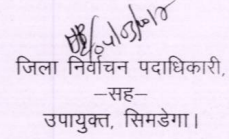 जिला निर्वाचन पदाधिकारी,
–सह–
उपायुक्त, सिमडेगा।